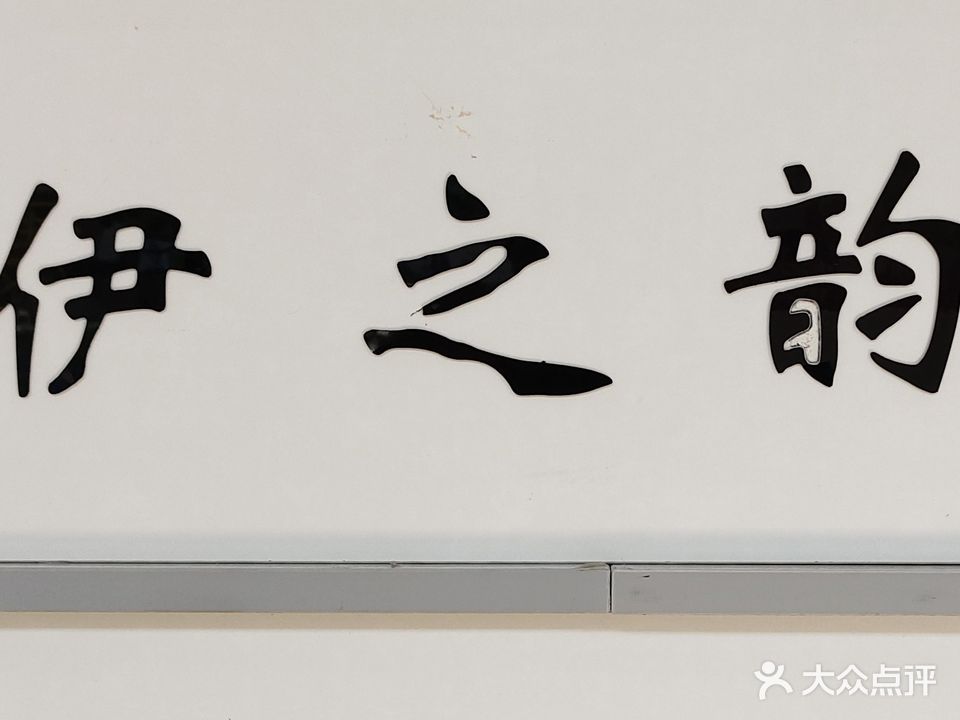 伊之韵
大众点评